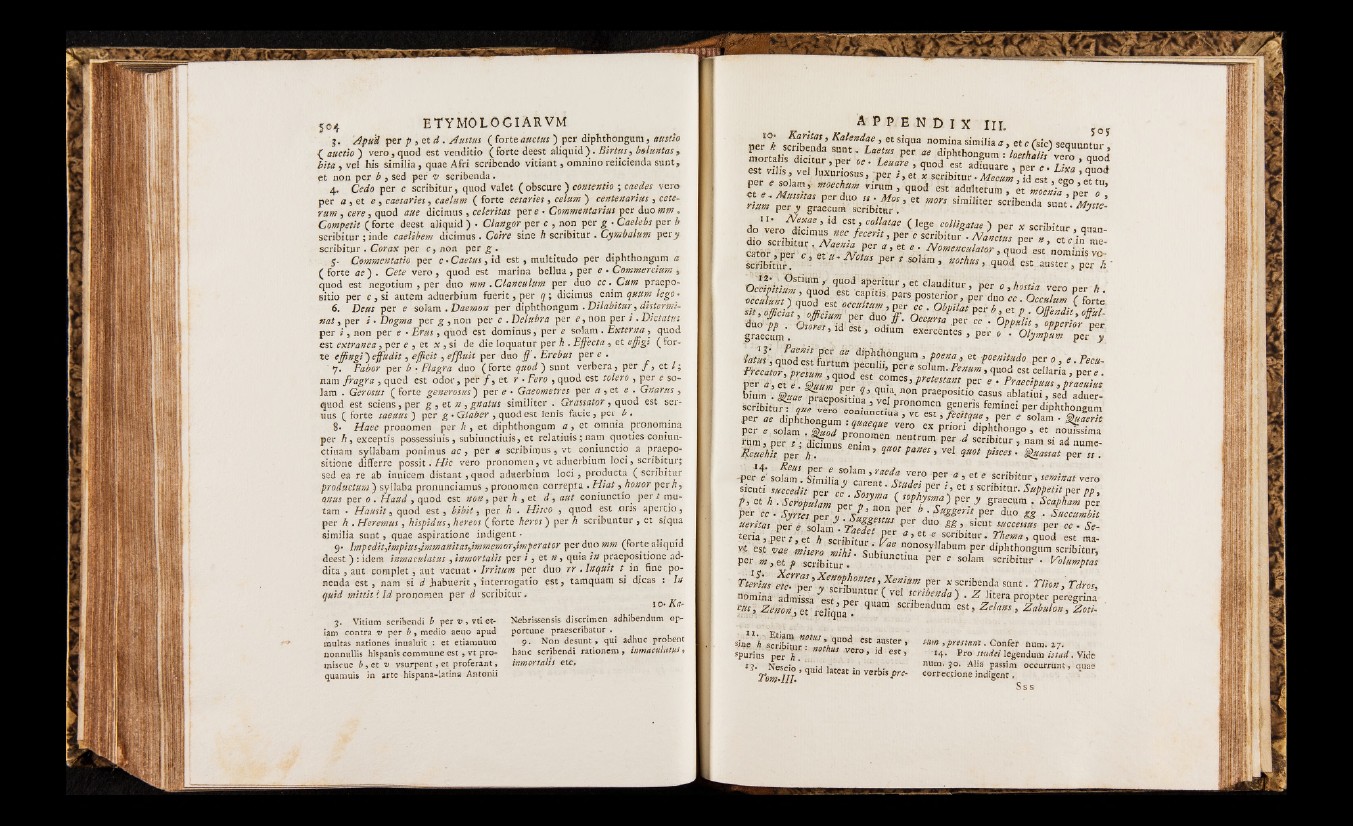 504 ETYMOLOGIARVM
3. Apud per p, et d. Austus (forte auctus) per diphthongum, austio
(auctio) vero, quod est venditio (forte deest aliquid). Birtus, boluntas,
bita, vel his similia, quae Afri scribendo vitiant, omnino reiicienda sunt,
et non per b, sed per v scribenda.
4. Cedo per c scribitur, quod valet (obscure) contentio; caedes vero
per a, et e, caesaries, caelum (forte cesaries, celum) centenarius, cete-
rum, cere, quod aue dicimus, celeritas per e. Commentarius per duo mm.
Competit (forte deest aliquid). Clangor per c, non per g. Caelebs per b
scribitur; inde caelibem dicimus. Coire sine h scribitur. Cymbalum per y
scribitur. Corax per c, non per g.
5. Commentatio per e. Caetus, id est, multitudo per diphthongum a
(forte ae). Cete vero, quod est marina bellua, per e. Commercium,
quod est negotium, per duo mm. Clanculum per duo cc. Cum praepo-
sitio per c, si autem aduerbium fuerit, per q; dicimus enim quum lego.
6. Deus per e solam. Daemon per diphthongum. Dilabitur, distermi-
nat, per i. Dogma per g, non per c. Delubra per e, non per i. Dictatus
per i, non per e. Erus, quod est dominus, per e solam. Externa, quod
est extranea, per e, et x, si de die loquatur per h. Effecta, et effigi (for-
te effingi) effudit, efficit, effluit per duo ff. Erebus per e.
7. Fabor per b. Flagra duo (forte quod) sunt verbera, per f, et l;
nam fragra, quod est odor, per f, et r. Fero, quod est tolero, per e so-
lam. Gerosus (forte generosus) per e. Gaeometres per a, et e. Gnarus,
quod est sciens, per g, et n, gnatus similiter. Grassator, quod est ser-
uus (forte saeuus) per g. Glaber, quod est lenis facie, per b.
8. Haec pronomen per h, et diphthongum a, et omnia pronomina
per h, exceptis possessiuis, subiunctiuis, et relatiuis; nam quoties coniun-
ctiuam syllabam ponimus ac, per a scribimus, vt coniunctio a praepo-
sitione differre possit. Hic vero pronomen, vt aduerbium loci, scribitur;
sed ea re ab inuicem distant, quod aduerbium loci, producta (scribitur
productum) syllaba pronunciamus, pronomen correpta. Hiat, honor per h,
onus per o. Haud, quod est non, per h, et d, aut coniunctio per t mu-
tam. Hausit, quod est, bibit, per h. Hisco, quod est oris apertio,
per h. Heremus, hispidus, hereos (forte heros) per h scribuntur, et siqua
similia sunt, quae aspiratione indigent.
9. Impedit, impius, immanitas, immemor, imperator per duo mm (forte aliquid
deest): idem inmaculatus, inmortalis per i, et n, quia in praepositione ad-
dita, aut complet, aut vacuat. Irritum per duo rr. Inquit t in fine po-
nenda est, nam si d habuerit, interrogatio est, tamquam si dicas: In
quid mittit? Id pronomen per d scribitur.
10. Ka-
3. Vitium scribendi b per v, vti et-
iam contra v per b, medio aeuo apud
multas nationes inualuit: et etiamnum
nonnullis hispanis commune est, vt pro-
miscue b, et v vsurpent, et proferant,
quamuis in arte hispana-latina Antonii
Nebrissensis discrimen adhibendum op-
portune praescribatur.
9. Non desunt, qui adhuc probent
hanc scribendi rationem, inmaculatus,
inmortalis etc.
APPENDIX III. 505
10. Karitas, Kalendae, et siqua nomina similia a, et c (sic) sequuntur,
per k scribenda sunt. Laetus per ae diphthongum: loethalis vero, quod
mortalis dicitur, per oe. Leuare, quod est adiuuare, per e. Lixa, quod
est vilis, vel luxuriosus, per i, et x scribitur. Mecum, id est, ego, et tu,
per e solam, moechum virum, quod est adulterum, et moenia, per o,
et e. Mussitas per duo ss. Mos, et mors similiter scribenda sunt. Myste-
rium per y graecum scribitur.
11. Nexae, id est, collatae (lege colligatae) per x scribitur, quan-
do vero dicimus nec fecerit, per c scribitur. Nanctus per n, et c in me-
dio scribitur. Naenia per a, et e. Nomenculator, quod est nominis vo-
cator, per c, et u. Notus per t solam, nothus, quod est auster, per h
scribitur.
12. Ostium, quod aperitur, et clauditur, per o, hostia vero per h.
Occipitium, quod est capitis pars posterior, per duo cc. Occulum (forte
occulunt) quod est occultum, per cc. Obpilat per b, et p. Offendit,ófful-
sit, officiat, officium per duo ff. Occursa per cc. Oppulit, opperior per
duo pp. Osores, id est, odium exercentes, per o. Olympum per y
graecum.
13. Paenit per ae diphthongum, poena, et poenitudo per o, e. Pecu-
latus, quod est furtum peculii, per e solum. Penum, quod est cellaria, per e.
Precator, presum, quod est comes, pretestant per e. Praecipuus, praeuius
per a, et e. Quum per q, quia non praepositio casus ablatiui, sed aduer-
bium. Quae praepositiua, vel pronomen generis feminei per diphthongum
scribitur: que vero coniunctiua, vt est, fecitque, per e solam. Quaerit
per ae diphthongum: quaeque vero ex priori diphthongo, et nouissima
per e solam. Quod pronomen neutrum per d scribitur, nam si ad nume-
rum, per t; dicimus enim, quot panes, vel quot pisces. Quassat per ss.
Reuehit per h.
14. Reus per e solam, raeda vero per a, et e scribitur, seminat vero
per e solam. Similia y carent. Studei per i, et s scribitur. Suppetit per pp,
sicuti succedit per cc. Sosyma (sophysma) per y graecum. Scapham per
p, et h. Scropulam per p, non per b. Suggerit per duo gg. Succumbit
per cc. Syrtes per y. Suggestus per duo gg, sicut successus per cc. Se-
ueritas per e solam. Taedet per a, et e scribitur. Thema, quod est ma-
teria, per t, et h scribitur. Vae nonosyllabum per diphthongum scribitur,
vt est vae misero mihi. Subiunctiua per e solam scribitur. Volumptas
per m, et p scribitur.
15. Xerras, Xenophontes, Xenium per x scribenda sunt. Ylion, Ydros,
Yterius etc. per y scribuntur (vel scribenda). Z litera propter peregrina
nomina admissa est, per quam scribendum est, Zelans, Zabulon, Zoti-
cus, Zenon, et reliqua.
11. Etiam notus, quod est auster,
sine h scribitur: nothus vero, id est,
spurius per h.
13. Nescio, quid lateat in verbis pre-
Tom. III.
sum, prestunt. Confer num. 27.
14. Pro studei legendum istud. Vide
num. 30. Alia passim occurrunt, quae
correctione indigent.
Sss